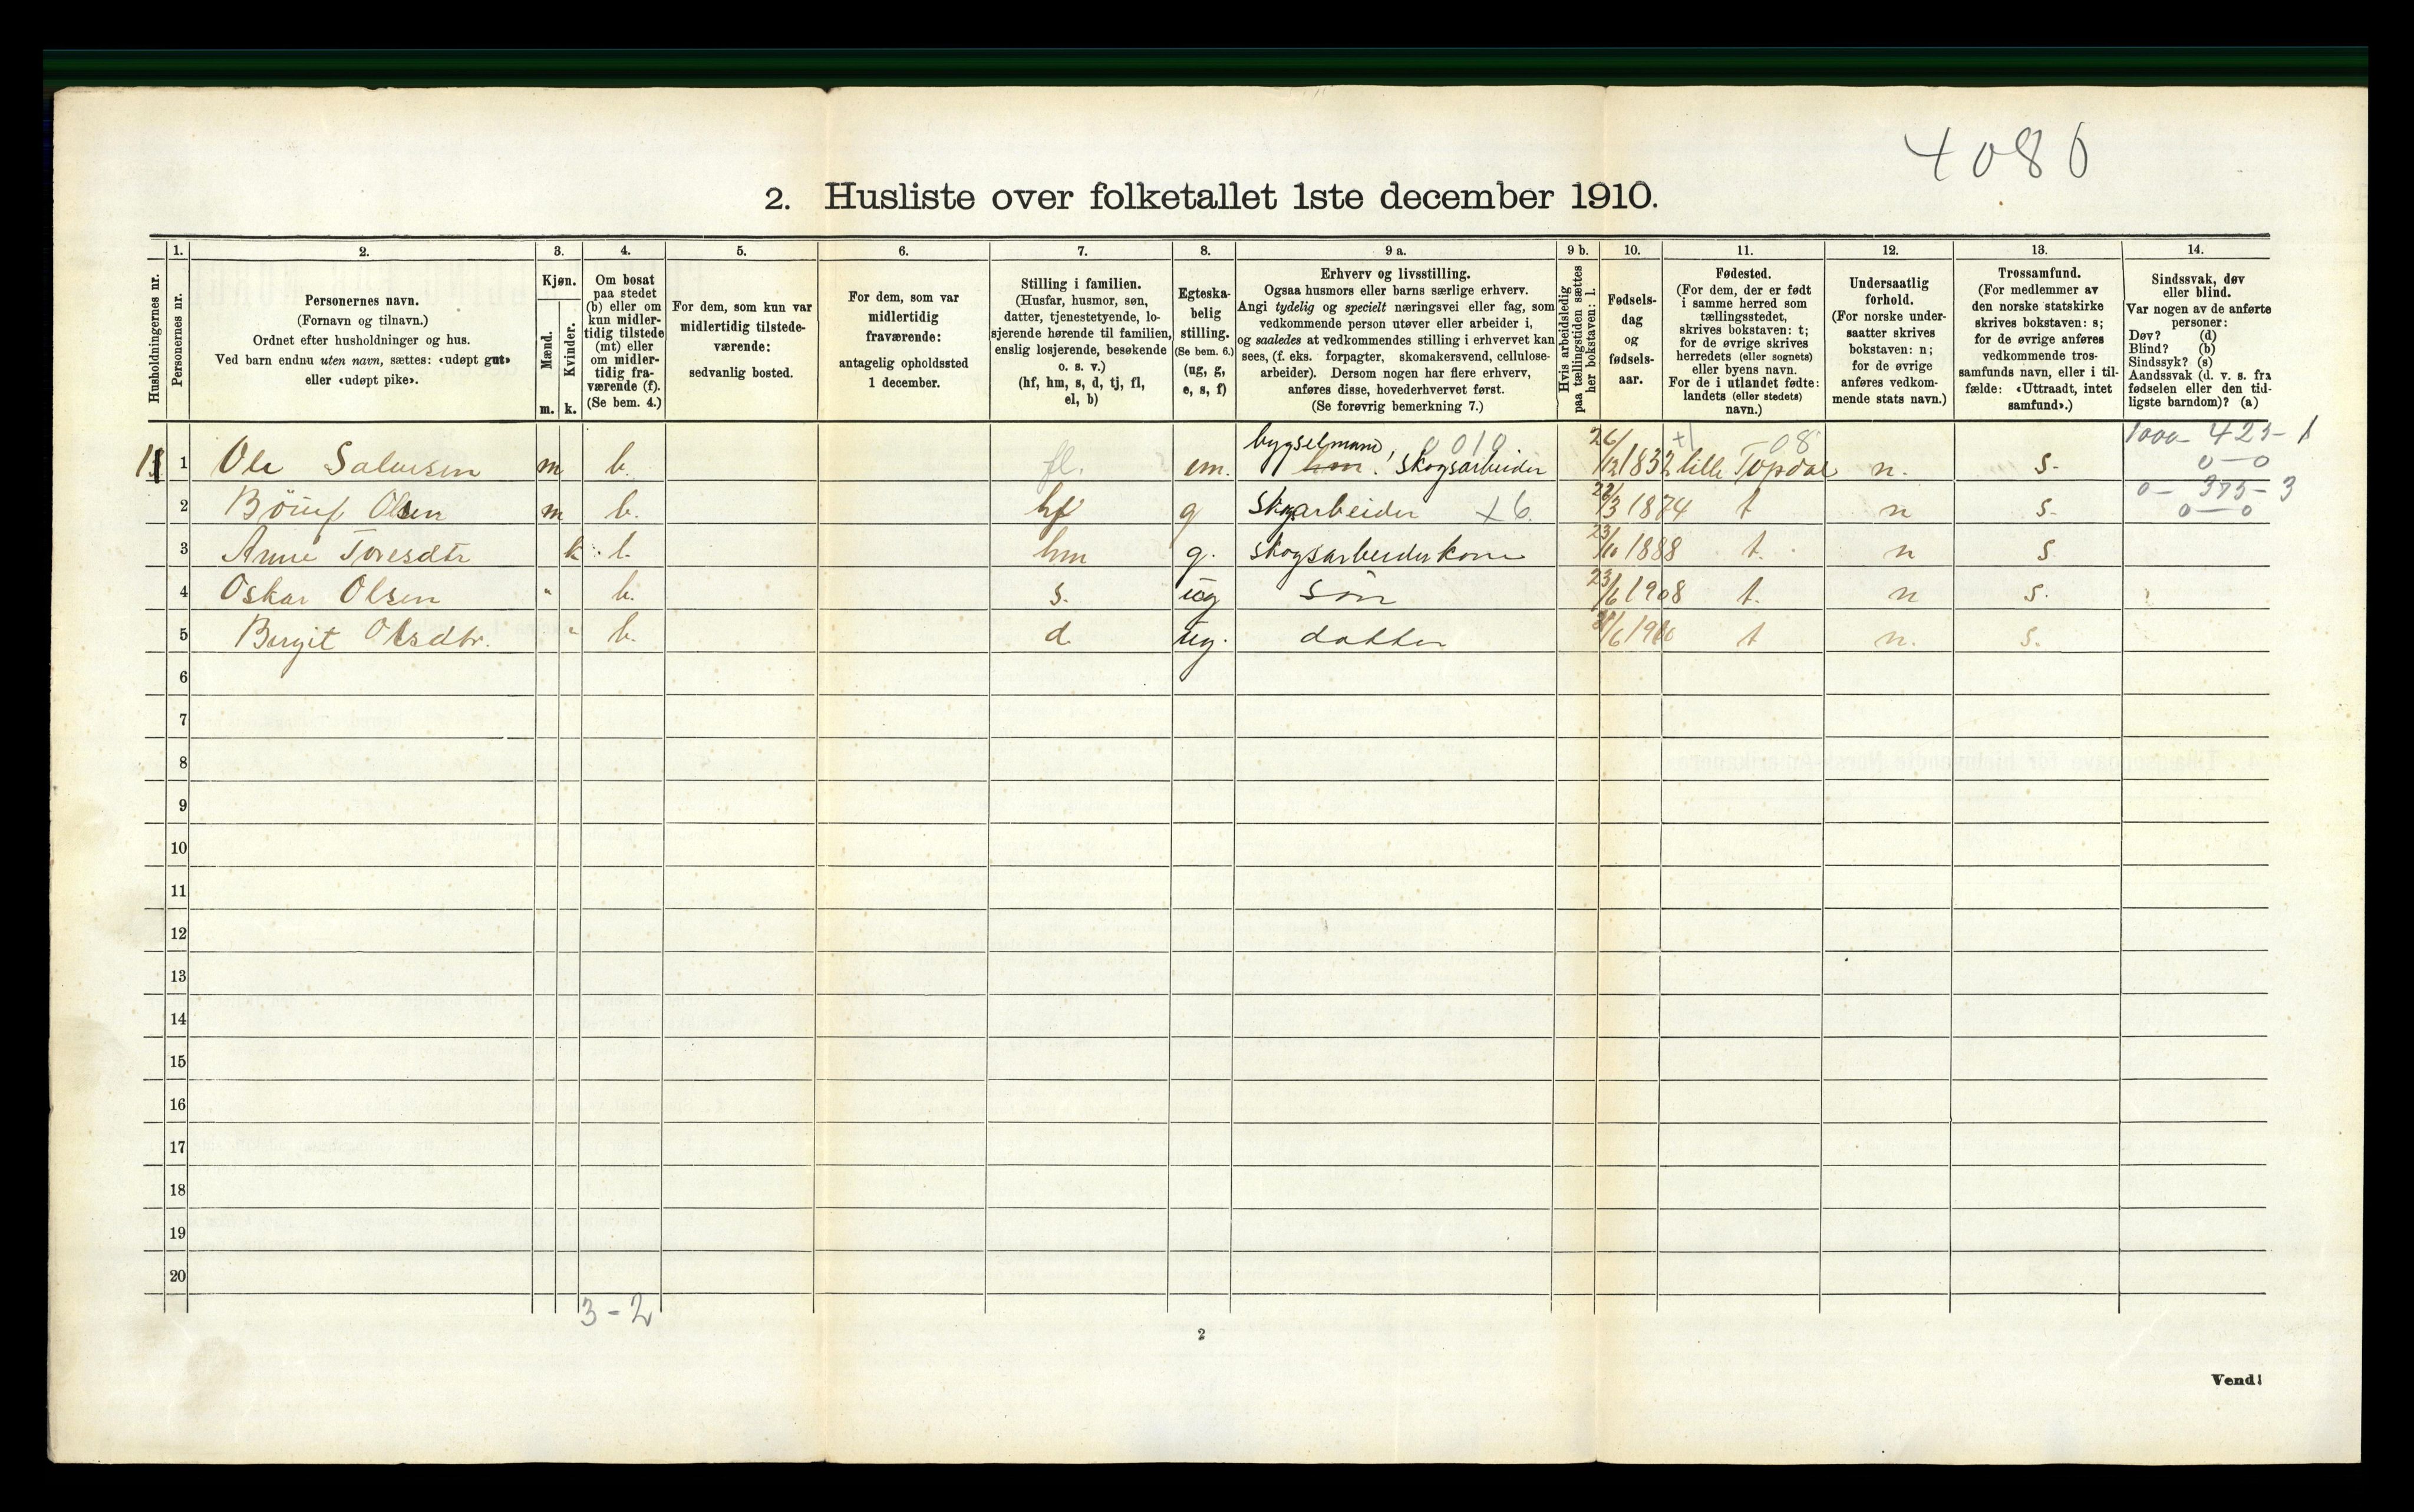 4086
2. Husliste over folketallet 1ste december 1910.
Husholdningernes nr.
1.
Personernes nr.
2.
Personernes navn.
(Fornavn og tilnavn.)
Ordnet efter husholdninger og hus.
Ved barn endnu uten navn, sættes: «udøpt gut»
eller «udøpt pike».
3.
Kjøn.
Mænd.
Kvinder.
m. k.
4.
Om bosat
paa stedet
(b) eller om
kun midler-
tidig tilstede
(mt) eller
om midler-
tidig fra-
værende (f).
(Se bem. 4.)
5.
For dem, som kun var
midlertidig tilstede-
værende:
sedvanlig bosted.
6.
For dem, som var
midlertidig
fraværende:
antagelig opholdssted
1 december.
7.
Stilling i familien.
(Husfar, husmor, søn,
datter, tjenestetyende, lo-
sjerende hørende til familien,
enslig losjerende, besøkende
o. s. v.)
(hf, hm, s, d, tj, fl,
el, b)
8.
Egteska-
belig
stilling.
(Se bem. 6.)
(ug, g,
e, s, f)
9 a.
Erhverv og livsstilling.
Ogsaa husmors eller barns særlige erhverv.
Angi tydelig og specielt næringsvei eller fag, som
vedkommende person utøver eller arbeider i,
og saaledes at vedkommendes stilling i erhvervet kan
sees, (f. eks. forpagter, skomakersvend, cellulose-
arbeider). Dersom nogen har flere erhverv,
anføres disse, hovederhvervet først.
(Se forøvrig bemerkning 7.)
9 b.
Hvis arbeidsledig
paa tællingstiden sættes
her bokstaven: l.
10.
Fødsels-
dag
og
fødsels-
aar.
11.
Fødested.
(For dem, der er født
i samme herred som
tællingsstedet,
skrives bokstaven: t;
for de øvrige skrives
herredets (eller sognets)
eller byens navn.
For de i utlandet fødte:
landets (eller stedets)
navn.)
12.
Undersaatlig
forhold.
(For norske under-
saatter skrives
bokstaven: n;
for de øvrige
anføres vedkom-
mende stats navn.)
13.
Trossamfund.
(For medlemmer av
den norske statskirke
skrives bokstaven: s;
for de øvrige anføres
vedkommende tros-
samfunds navn, eller i til-
fælde: «Uttraadt, intet
samfund».)
14.
Sindssvak, døv
eller blind.
Var nogen av de anførte
personer:
Døv? (d)
Blind? (b)
Sindssyk? (s)
Aandssvak (d. v. s. fra
fødselen eller den tid-
ligste barndom)? (a)
bygselmand, 0010 +1 08 1000 - 425 - 1
1 Ole m b. fl. em. skogsarbeider 26/12 1832 lille Topdal n. s. 0 - 0
2 Olsen m b. hf g skogarbeider +6. 1874 t n s. 0 - 375 - 3
0 - 0
3 Anne Toresdtr k b. hm g. skogsarbeiderkone 23/10 1888 t. n s
4 Oskar Olsen " b. s. ug søn 23/6 1908 t. n s.
5 Bergit Olsdtr. " b. d ug. datter 1910 t n. s.
6
7
8
9
10
11
12
13
14
15
16
17
18
19
20
3 - 2
2
Vend!